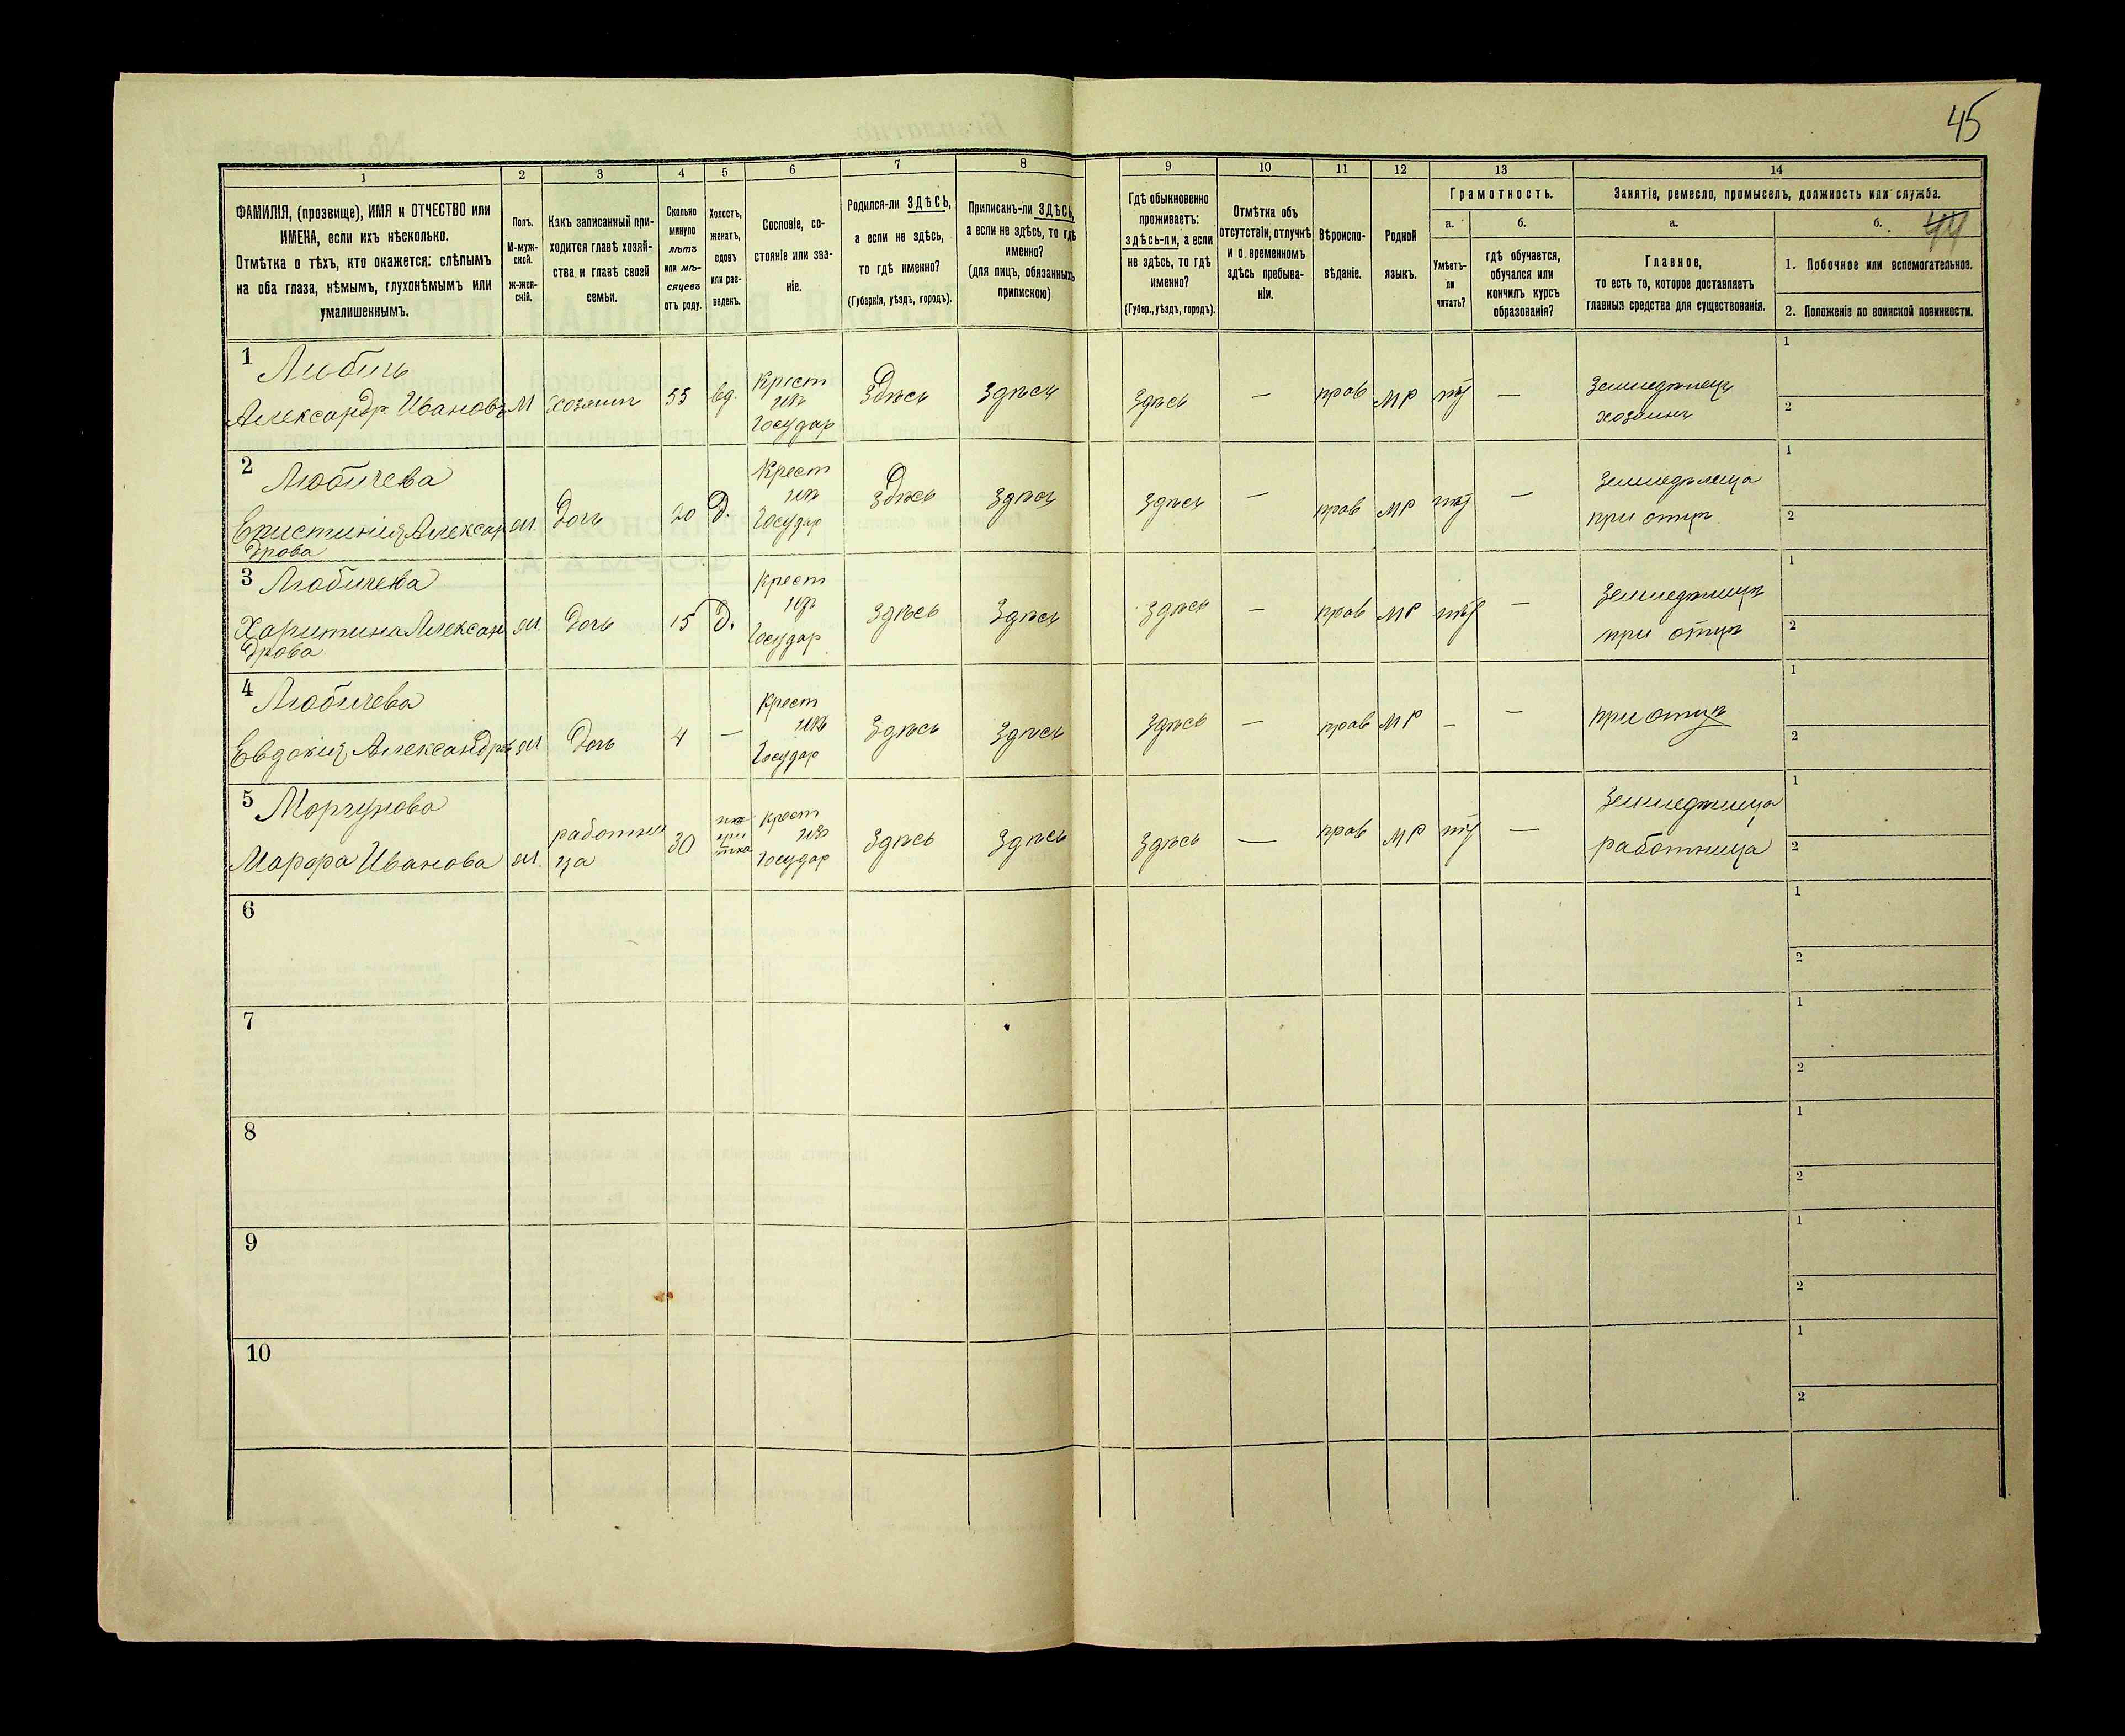 45
1
2
3
4
5
6
7
8
9
10
11
12
13
14
ФАМИЛІЯ, (прозвище), ИМЯ и ОТЧЕСТВО или
ИМЕНА, если ихъ нѣсколько.
Отмѣтка о тѣхъ, кто окажется: слѣпымъ
на оба глаза, нѣмымъ, глухонѣмымъ или
умалишеннымъ.
Полъ.
М-муж-
ской.
ж-жен-
скій.
Какъ записанный при-
ходится главѣ хозяй-
ства и главѣ своей
семьи.
Сколько
минуло
лѣтъ
или мѣ-
сяцевъ
отъ роду.
Холостъ,
женатъ,
вдовъ
или раз-
веденъ.
Сословіе, со-
стояніе или зва-
ніе.
Родился-ли ЗДѢСЬ,
а если не здѣсь,
то гдѣ именно?
(Губернія, уѣздъ, городъ).
Приписанъ-ли ЗДѢСЬ,
а если не здѣсь, то гдѣ
именно?
(для лицъ, обязанныхъ
припискою)
Гдѣ обыкновенно
проживаетъ:
здѣсь-ли, а если
не здѣсь, то гдѣ
именно?
(Губер., уѣздъ, городъ).
Отмѣтка объ
отсутствіи, отлучкѣ
и о временномъ
здѣсь пребыва-
ніи.
Вѣроиспо-
вѣданіе.
Родной
языкъ.
Грамотность.
а.
Умѣетъ-
ли
читать?
б.
гдѣ обучается,
обучался или
кончилъ курсъ
образованія?
Занятіе, ремесло, промыселъ, должность или служба.
а.
Главное,
то есть то, которое доставляетъ
главныя средства для существованія.
б.
44
1. Побочное или вспомогательноэ.
2. Положеніе по воинской повинности.
1 Любичъ
Александр Ивановъ М хозяинъ 55 вд. Крест изъ Государ Здѣсь Здѣсь Здѣсь — прав МР нѣт — Земледѣлецъ хозяинъ 1 2
2 Любичева
Христинія Алексан ж Дочь 20 Д. Крест изъ Государ Здѣсь Здѣсь Здѣсь — прав МР нѣт — Земледѣлица при отцѣ 1 2
дрова
3 Любичева
Харитина Алексан ж. Дочь 15 Д. Крест изъ Государ Здѣсь Здѣсь Здѣсь — прав МР нѣт — Земледѣлица при отцѣ 1 2
дрова
4 Любичева
Евдокія Александров ж Дочь 4 — Крест изъ Государ Здѣсь Здѣсь Здѣсь — прав МР — — при отцѣ 1 2
5 Моргунова
Марфа Иванова ж. работни ца 30 крест изъ Государ Здѣсь Здѣсь Здѣсь — прав МР нѣт — Земледѣлица работница 1 2
6 1 2
7 1 2
8 1 2
9 1 2
10 1 2